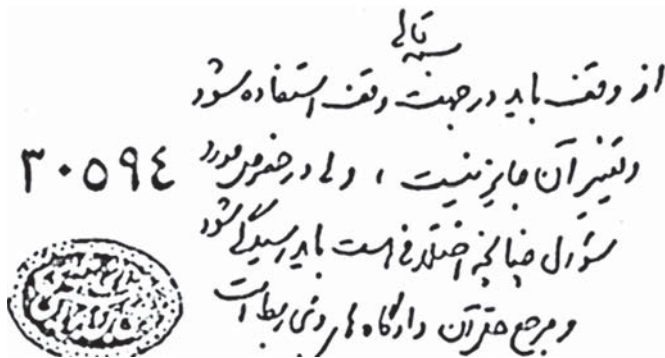 بسمه تعالی
از وقف باید در جهت وقف استفاده شود
و تغییر آن جایز نیست ، ولی در خصوص مورد
۳۰۵۹۴
سؤال چنانچه اختلافی است باید رسیدگی شود
و مرجع حل آن دادگاه های ذی ربط است